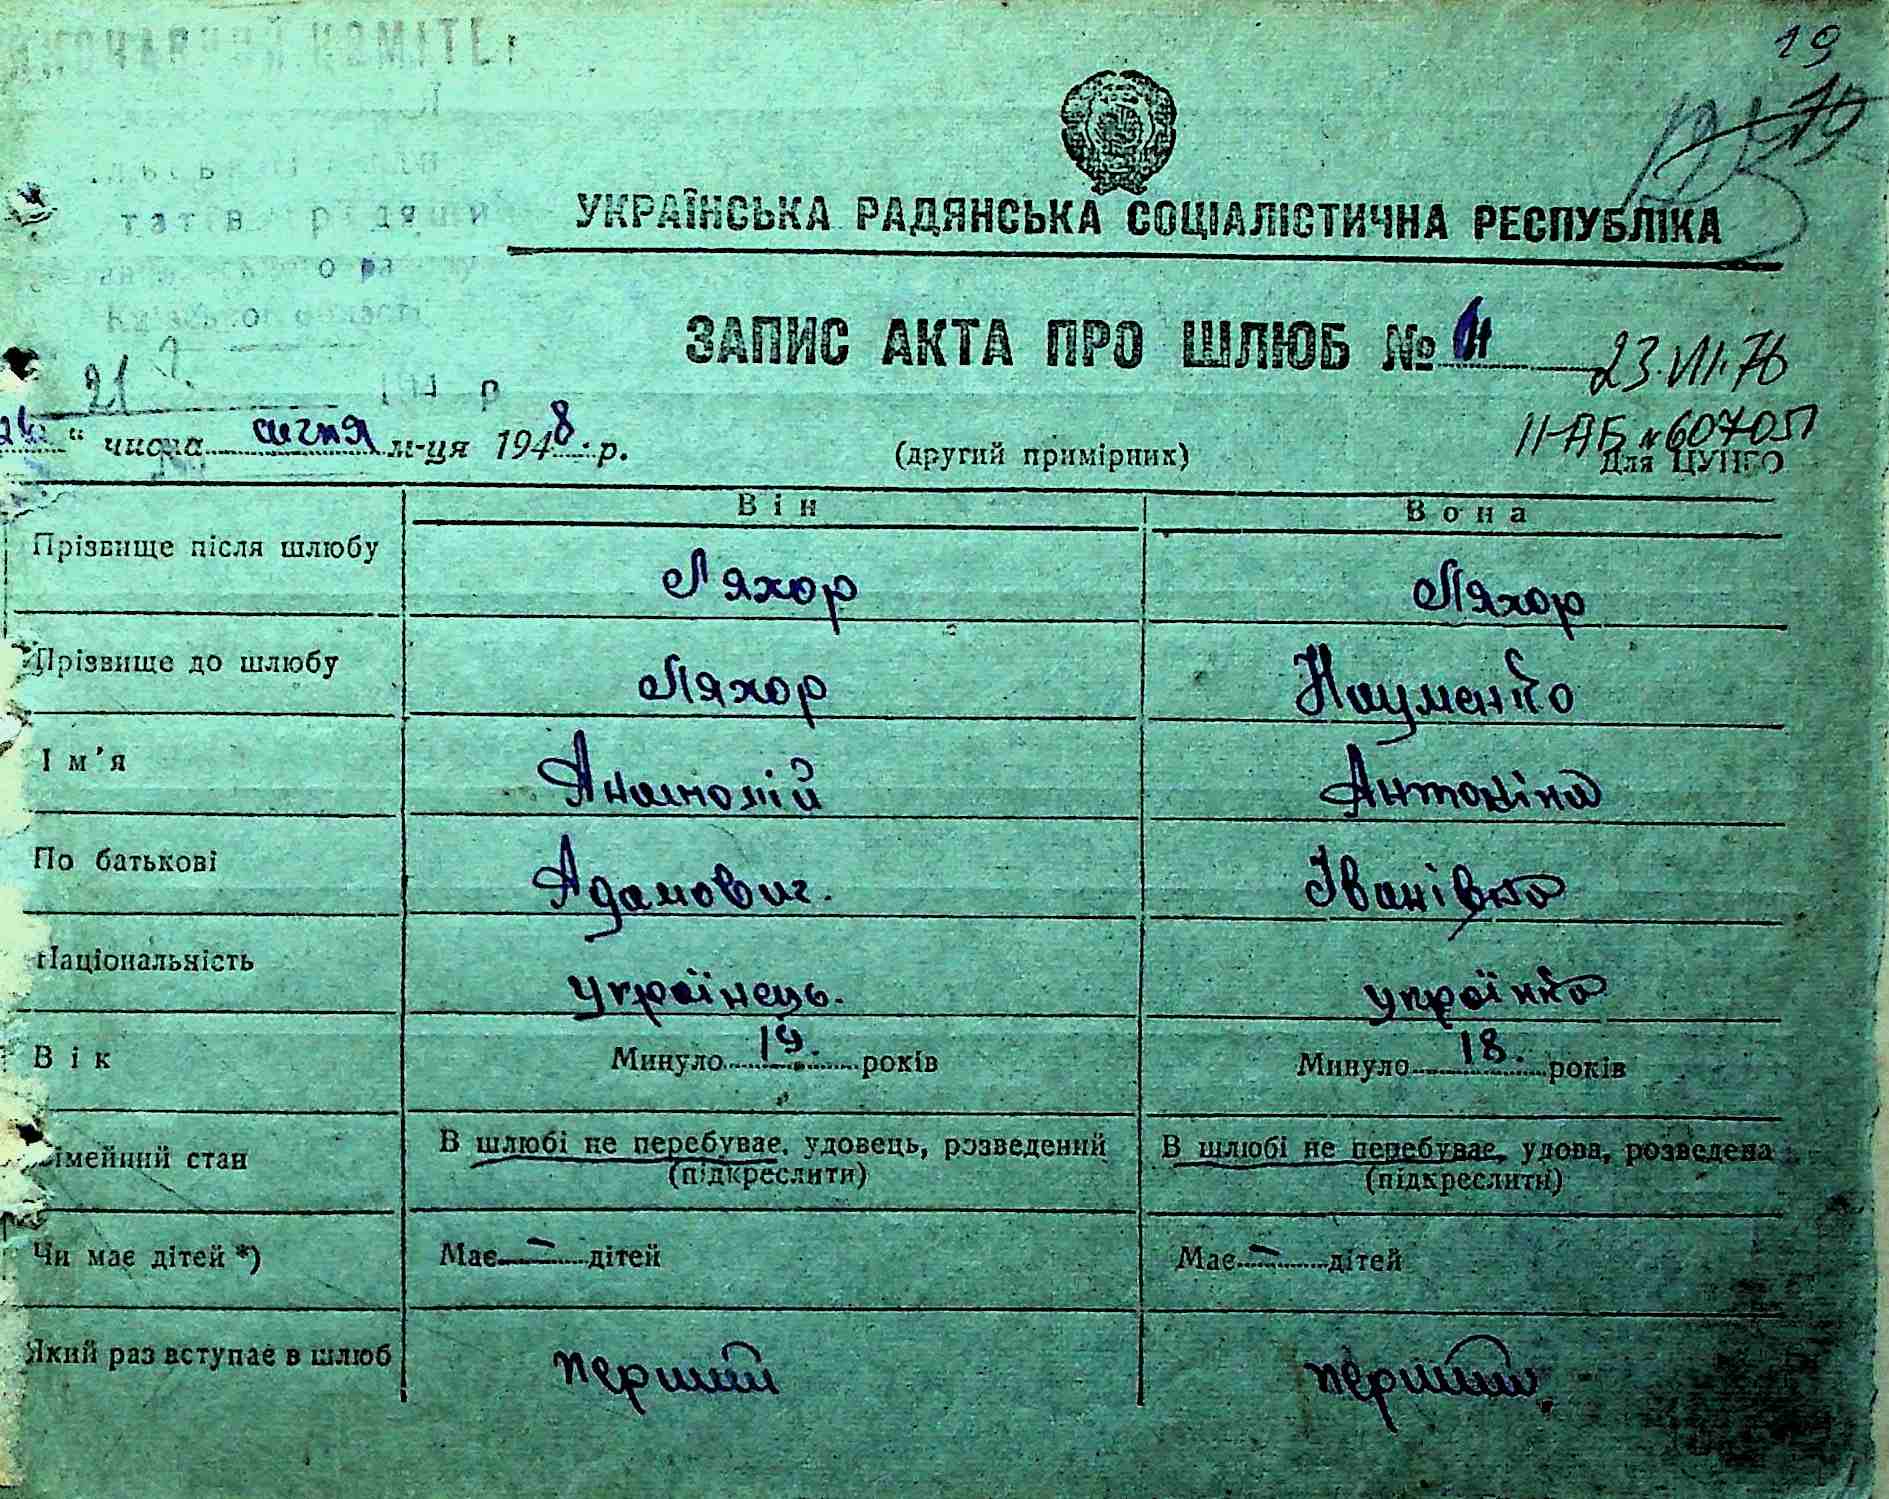 19
УКРАЇНСЬКА РАДЯНСЬКА СОЦІАЛІСТИЧНА РЕСПУБЛІКА
ЗАПИС АКТА ПРО ШЛЮБ №
23.VII.76
21
р
II-АБ № 607051
" числа січня м-ця 1948 р.
(другий примірник)
Для ЦУНГО
Він Вона
Прізвище після шлюбу Ляхор Ляхор
Прізвище до шлюбу Ляхор Науменко
Ім'я Анатолій Антоніна
По батькові Адамович. Іванівна
Національність українець. українка
Вік Минуло 19. років Минуло 18. років
імейний стан В шлюбі не перебуває, удовець, розведений В шлюбі не перебуває, удова, розведена
(підкреслити) (підкреслити)
Чи має дітей *) Має – дітей Має – дітей
Який раз вступає в шлюб перший перший.